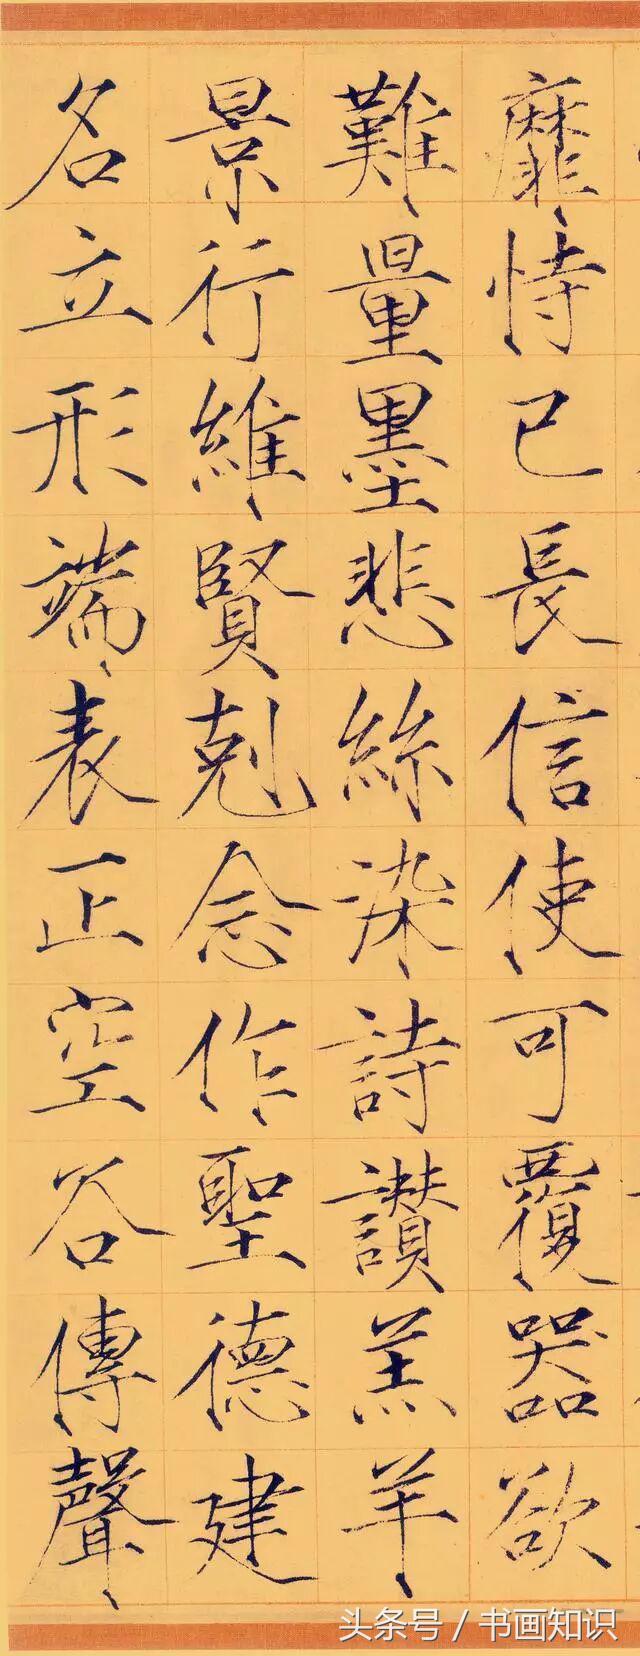 靡恃己長信使可覆器欲
難量墨悲絲染詩讚羔羊
景行維賢剋念作聖德建
名立形端表正空谷傳聲
头条号 / 书画知识